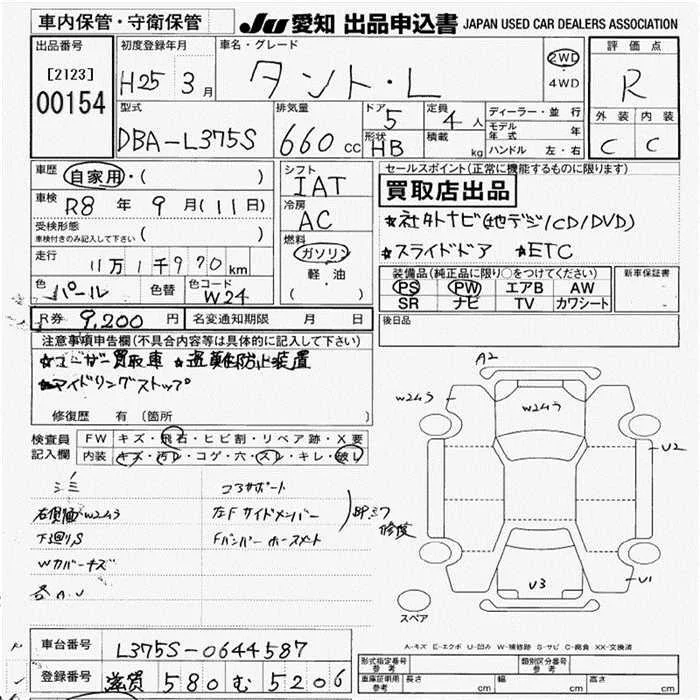 車内保管・守衛保管
JU 愛知 出品申込書 JAPAN USED CAR DEALERS ASSOCIATION
出品番号 初度登録年月 車名・グレード 評価点
[2123]
00154
H25 3月 タント・L 2WD ・ 4WD R
型式 排気量 ドア 定員 ディーラー・並 行 外装 内装
DBA-L375S 660 CC 5 4人 モデル年式 年 C C
形状 HB 積載 kg ハンドル 左・右
車歴 自家用・( ) シフト IAT セールスポイント(正常に機能するものに限ります)
車検 R8年 9月(11日) 冷房 AC 買取店出品
受検形態 車検付きのみ記入して下さい ( ) ★社外ナビ(地デジ/CD/DVD)
燃料 ガソリン 軽・油 ( ) ★スライドドア ★ETC
走行 11万1千970km 装備品(純正品に限り○をつけてください) 新車保証書
色 パール 色替 色コード W24 PS PW エアB AW
SR ナビ TV カワシート
R券 9,200円 名変通知期限 月 日 後日品
注意事項申告欄(不具合内容等は具体的に記入して下さい)
★ユーザー買取車 ★追突防止装置
★アイドリングストップ
修復歴 有 (箇所
検査員記入欄 FW キズ・飛石・ヒビ割・リペア跡・X要
内装 キズ・汚レ・コゲ・穴・スレ・キレ・破レ
コアサポート
左Fサイドメンバー
下廻りS Fバンパーホースメント
Wカバーキズ 修復
各A.U
A2
W2ムラ
W2ムラ
U2
U3
U1
スペア
A-キズ E-エクボ U-凹み W-補修跡 S-サビ C-腐食 XX-交換済
車台番号 L375S-0644587
登録番号 滋賀 580 む 5206
形式指定番号 参考 類別区分番号 参考
車庫証明用 参考 長さ cm 幅 cm 高さ cm